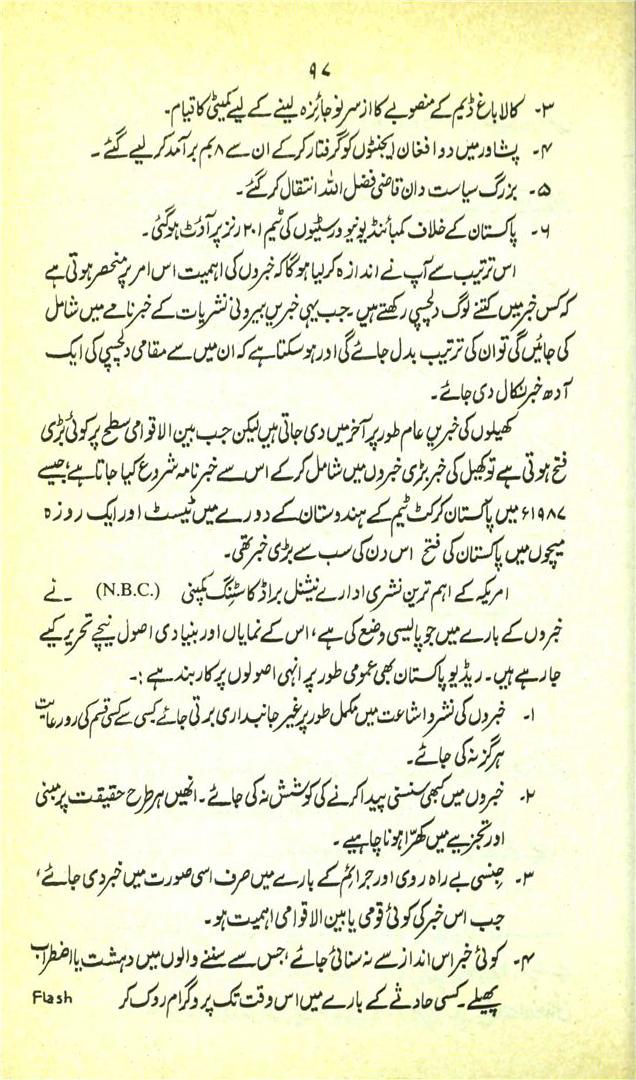 ۹۷
۳۔ کالا باغ ڈیم کے منصوبے کا از سر نو جائزہ لینے کے لیے کمیٹی کا قیام۔
۴۔ پشاور میں دو افغان ایجنٹوں کو گرفتار کر کے ان سے ۸ بم برآمد کر لیے گئے۔
۵۔ بزرگ سیاست دان قاضی فضل اللہ انتقال کر گئے۔
۶۔ پاکستان کے خلاف کمبائنڈ یونیورسٹیوں کی ٹیم ۳۰۱ رنز پر آؤٹ ہو گئی۔
اس ترتیب سے آپ نے اندازہ کر لیا ہو گا کہ خبروں کی اہمیت اس امر پر منحصر ہوتی ہے
کہ کس خبر میں کتنے لوگ دلچسپی رکھتے ہیں۔ جب یہی خبریں بیرونی نشریات کے خبرنامے میں شامل
کی جائیں گی تو ان کی ترتیب بدل جائے گی اور ہو سکتا ہے کہ ان میں سے مقامی دلچسپی کی ایک
آدھ خبر نکال دی جائے۔
کھیلوں کی خبریں عام طور پر آخر میں دی جاتی ہیں لیکن جب بین الاقوامی سطح پر کوئی بڑی
فتح ہوتی ہے تو کھیل کی خبر بڑی خبروں میں شامل کر کے اس سے خبرنامہ شروع کیا جاتا ہے، جیسے
۱۹۸۷ء میں پاکستان کرکٹ ٹیم کے ہندوستان کے دورے میں ٹیسٹ اور ایک روزہ
میچوں میں پاکستان کی فتح اس دن کی سب سے بڑی خبر تھی۔
امریکہ کے اہم ترین نشری ادارے نیشنل براڈ کاسٹنگ کمپنی (N.B.C.) نے
خبروں کے بارے میں جو پالیسی وضع کی ہے، اس کے نمایاں اور بنیادی اصول نیچے تحریر کیے
جا رہے ہیں۔ ریڈیو پاکستان بھی عمومی طور پر انہی اصولوں پر کاربند ہے :۔
۱۔ خبروں کی نشر و اشاعت میں مکمل طور پر غیر جانبداری برتی جائے کسی سے کسی قسم کی رو رعایت
ہرگز نہ کی جائے۔
۲۔ خبروں میں کبھی سنسنی پیدا کرنے کی کوشش نہ کی جائے۔ انھیں ہر طرح حقیقت پر مبنی
اور تجزیے میں کھرا ہونا چاہیے۔
۳۔ جنسی بے راہ روی اور جرائم کے بارے میں صرف اسی صورت میں خبر دی جائے،
جب اس خبر کی کوئی قومی یا بین الاقوامی اہمیت ہو۔
۴۔ کوئی خبر اس انداز سے نہ سنائی جائے، جس سے سننے والوں میں دہشت یا اضطراب
پھیلے۔ کسی حادثے کے بارے میں اس وقت تک پروگرام روک کر Flash